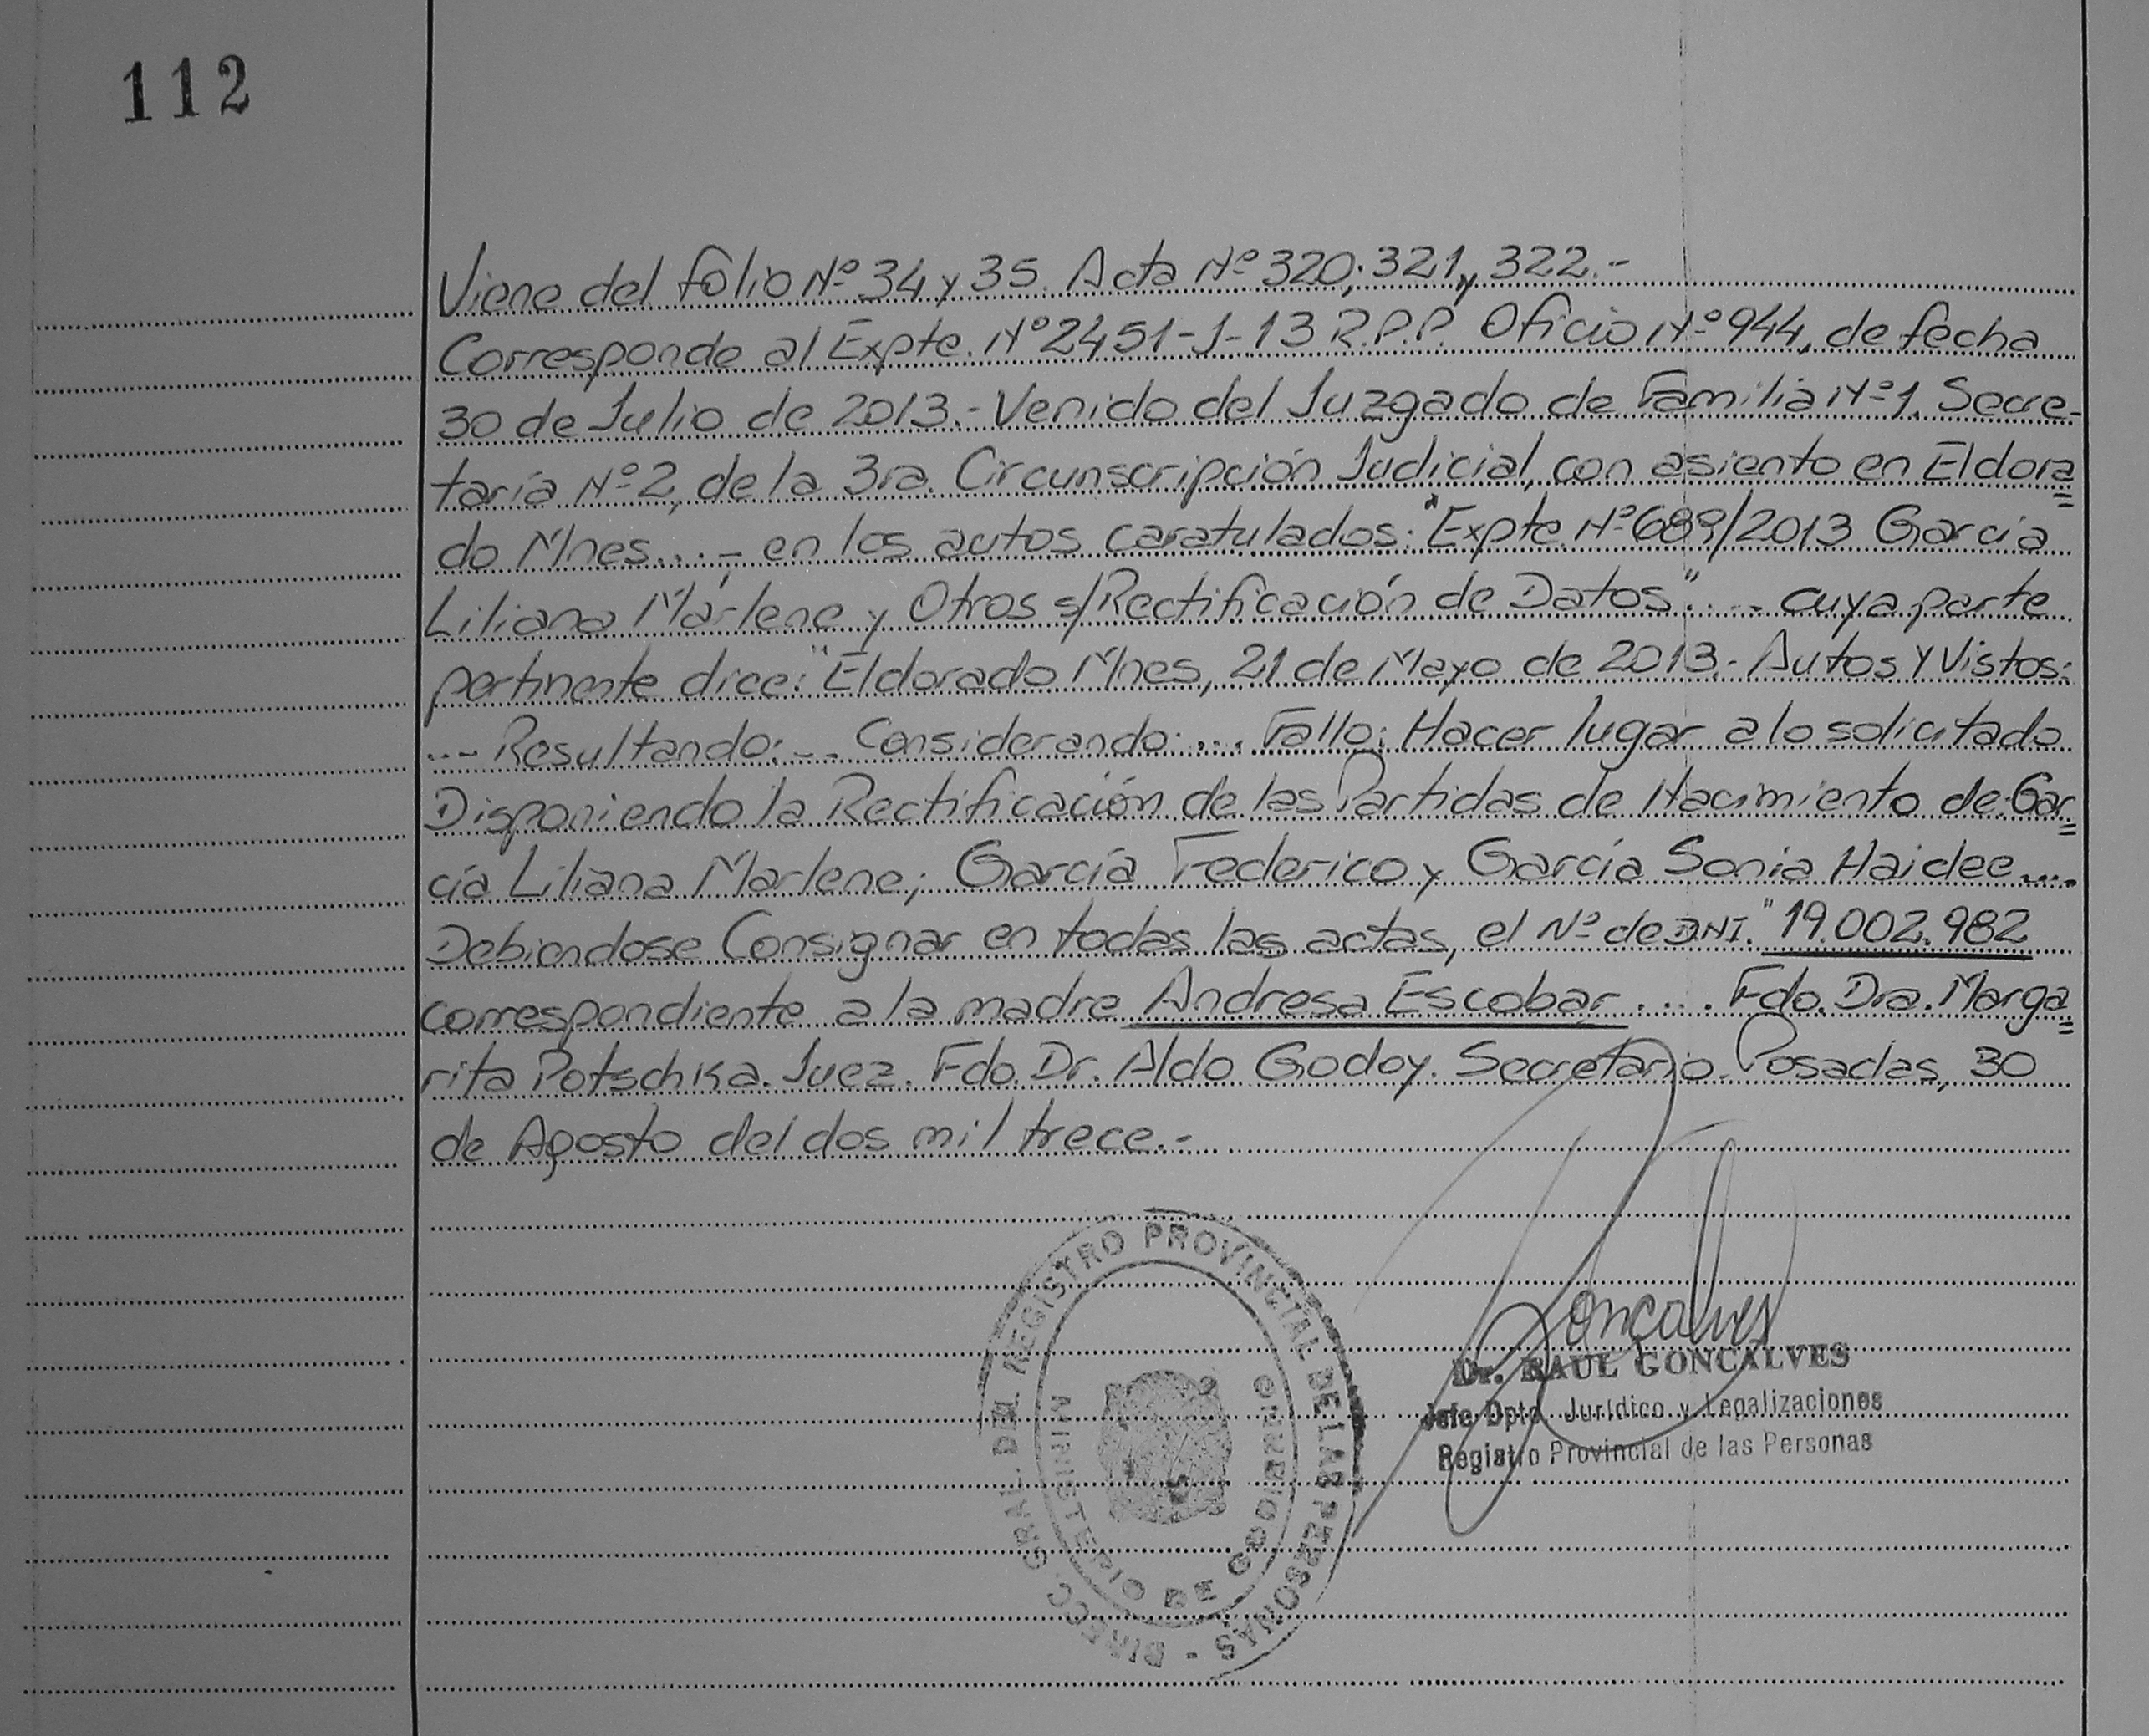 112
Viene del folio Nº 34 y 35. Acta Nº 320; 321 y 322.-
Corresponde al Expte. Nº 2451-J-13 R.P.P. Oficio Nº 944, de fecha
30 de Julio de 2013.- Venido del Juzgado de Familia Nº 1. Secre-
taría Nº 2, de la 3ra. Circunscripción Judicial, con asiento en Eldora=
do Mnes...- en los autos caratulados: "Expte. Nº 689/2013 García
Liliana Márlene y Otros s/Rectificación de Datos"...- cuya parte
pertinente dice: "Eldorado Mnes, 21 de Mayo de 2013.- Autos y Vistos:
...- Resultando:... Considerando:... Fallo: Hacer lugar a lo solicitado
Disponiendo la Rectificación de las Partidas de Nacimiento de: Gar=
cía Liliana Marlene; García Federico y García Sonia Haidee....
Debiendose Consignar en todas las actas, el Nº de DNI. "19.002.982
correspondiente a la madre Andresa Escobar.... Fdo. Dra. Marga=
rita Potschka. Juez. Fdo. Dr. Aldo Godoy. Secretario. Posadas, 30
de Agosto del dos mil trece.-
DIRECC. GRAL. DEL REGISTRO PROVINCIAL DE LAS PERSONAS -
MINISTERIO DE GOBIERNO
Goncalves
Dr. RAUL GONCALVES
Jefe Dpto. Jurídico y Legalizaciones
Registro Provincial de las Personas